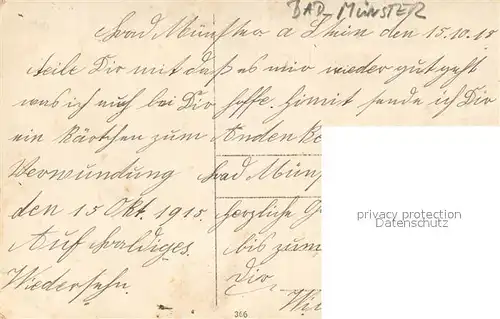 BAD MÜNSTER
Bad Münster a Stein den 15.10.15
teile Dir mit daß es mir wieder gut geht
was ich auch bei Dir hoffe. Himit sende ich Dir
ein Kärtchen zum Andenken
Verwundung Bad Müns
den 15 Okt. 1915. herzliche G
Auf baldiges bis zum
Wiedersehn. Dir
Wi
366
privacy protection
Datenschutz